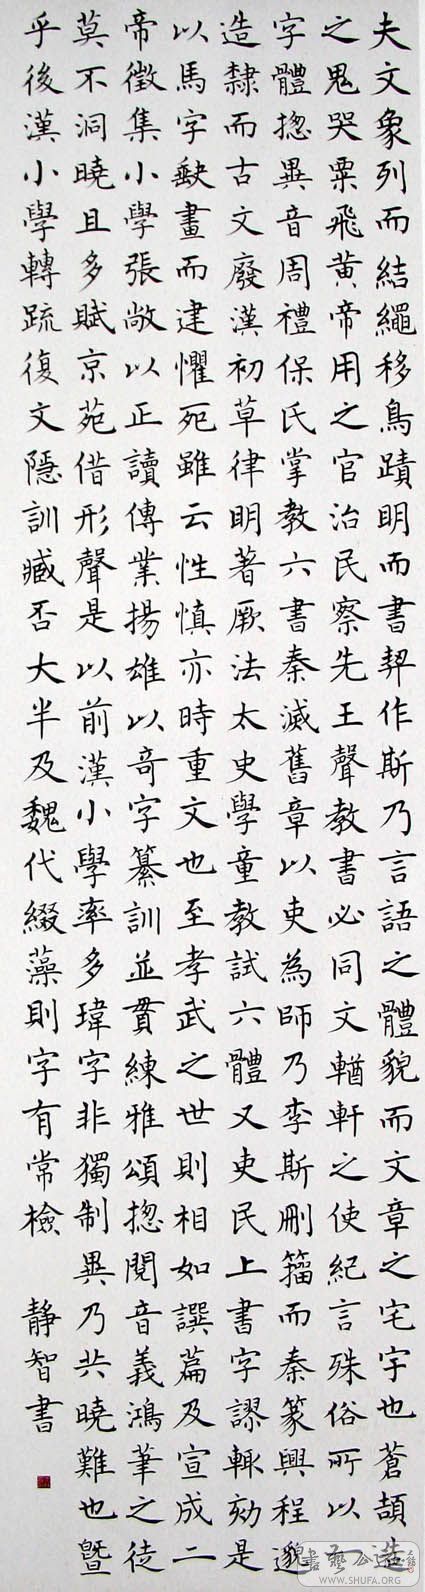 夫文象列而結繩移鳥蹟明而書契作斯乃言語之體貌而文章之宅宇也蒼頡造
之鬼哭粟飛黄帝用之官治民察先王聲教書必同文輶軒之使紀言殊俗所以一
字體揔異音周禮保氏掌教六書秦滅舊章以吏為師乃李斯刪籀而秦篆興程邈
造隸而古文廢漢初草律明著厥法太史學童教試六體又吏民上書字謬輒劾是
以馬字缺畫而建懼死雖云性慎亦時重文也至孝武之世則相如譔篇及宣成二
帝徵集小學張敞以正讀傳業揚雄以奇字纂訓並貫練雅頌揔閱音義鴻筆之徒
莫不洞曉且多賦京苑借形聲是以前漢小學率多瑋字非獨制異乃共曉難也暨
乎後漢小學轉疏復文隱訓臧否大半及魏代綴藻則字有常檢
靜智書
WWW.SHUFA.ORG